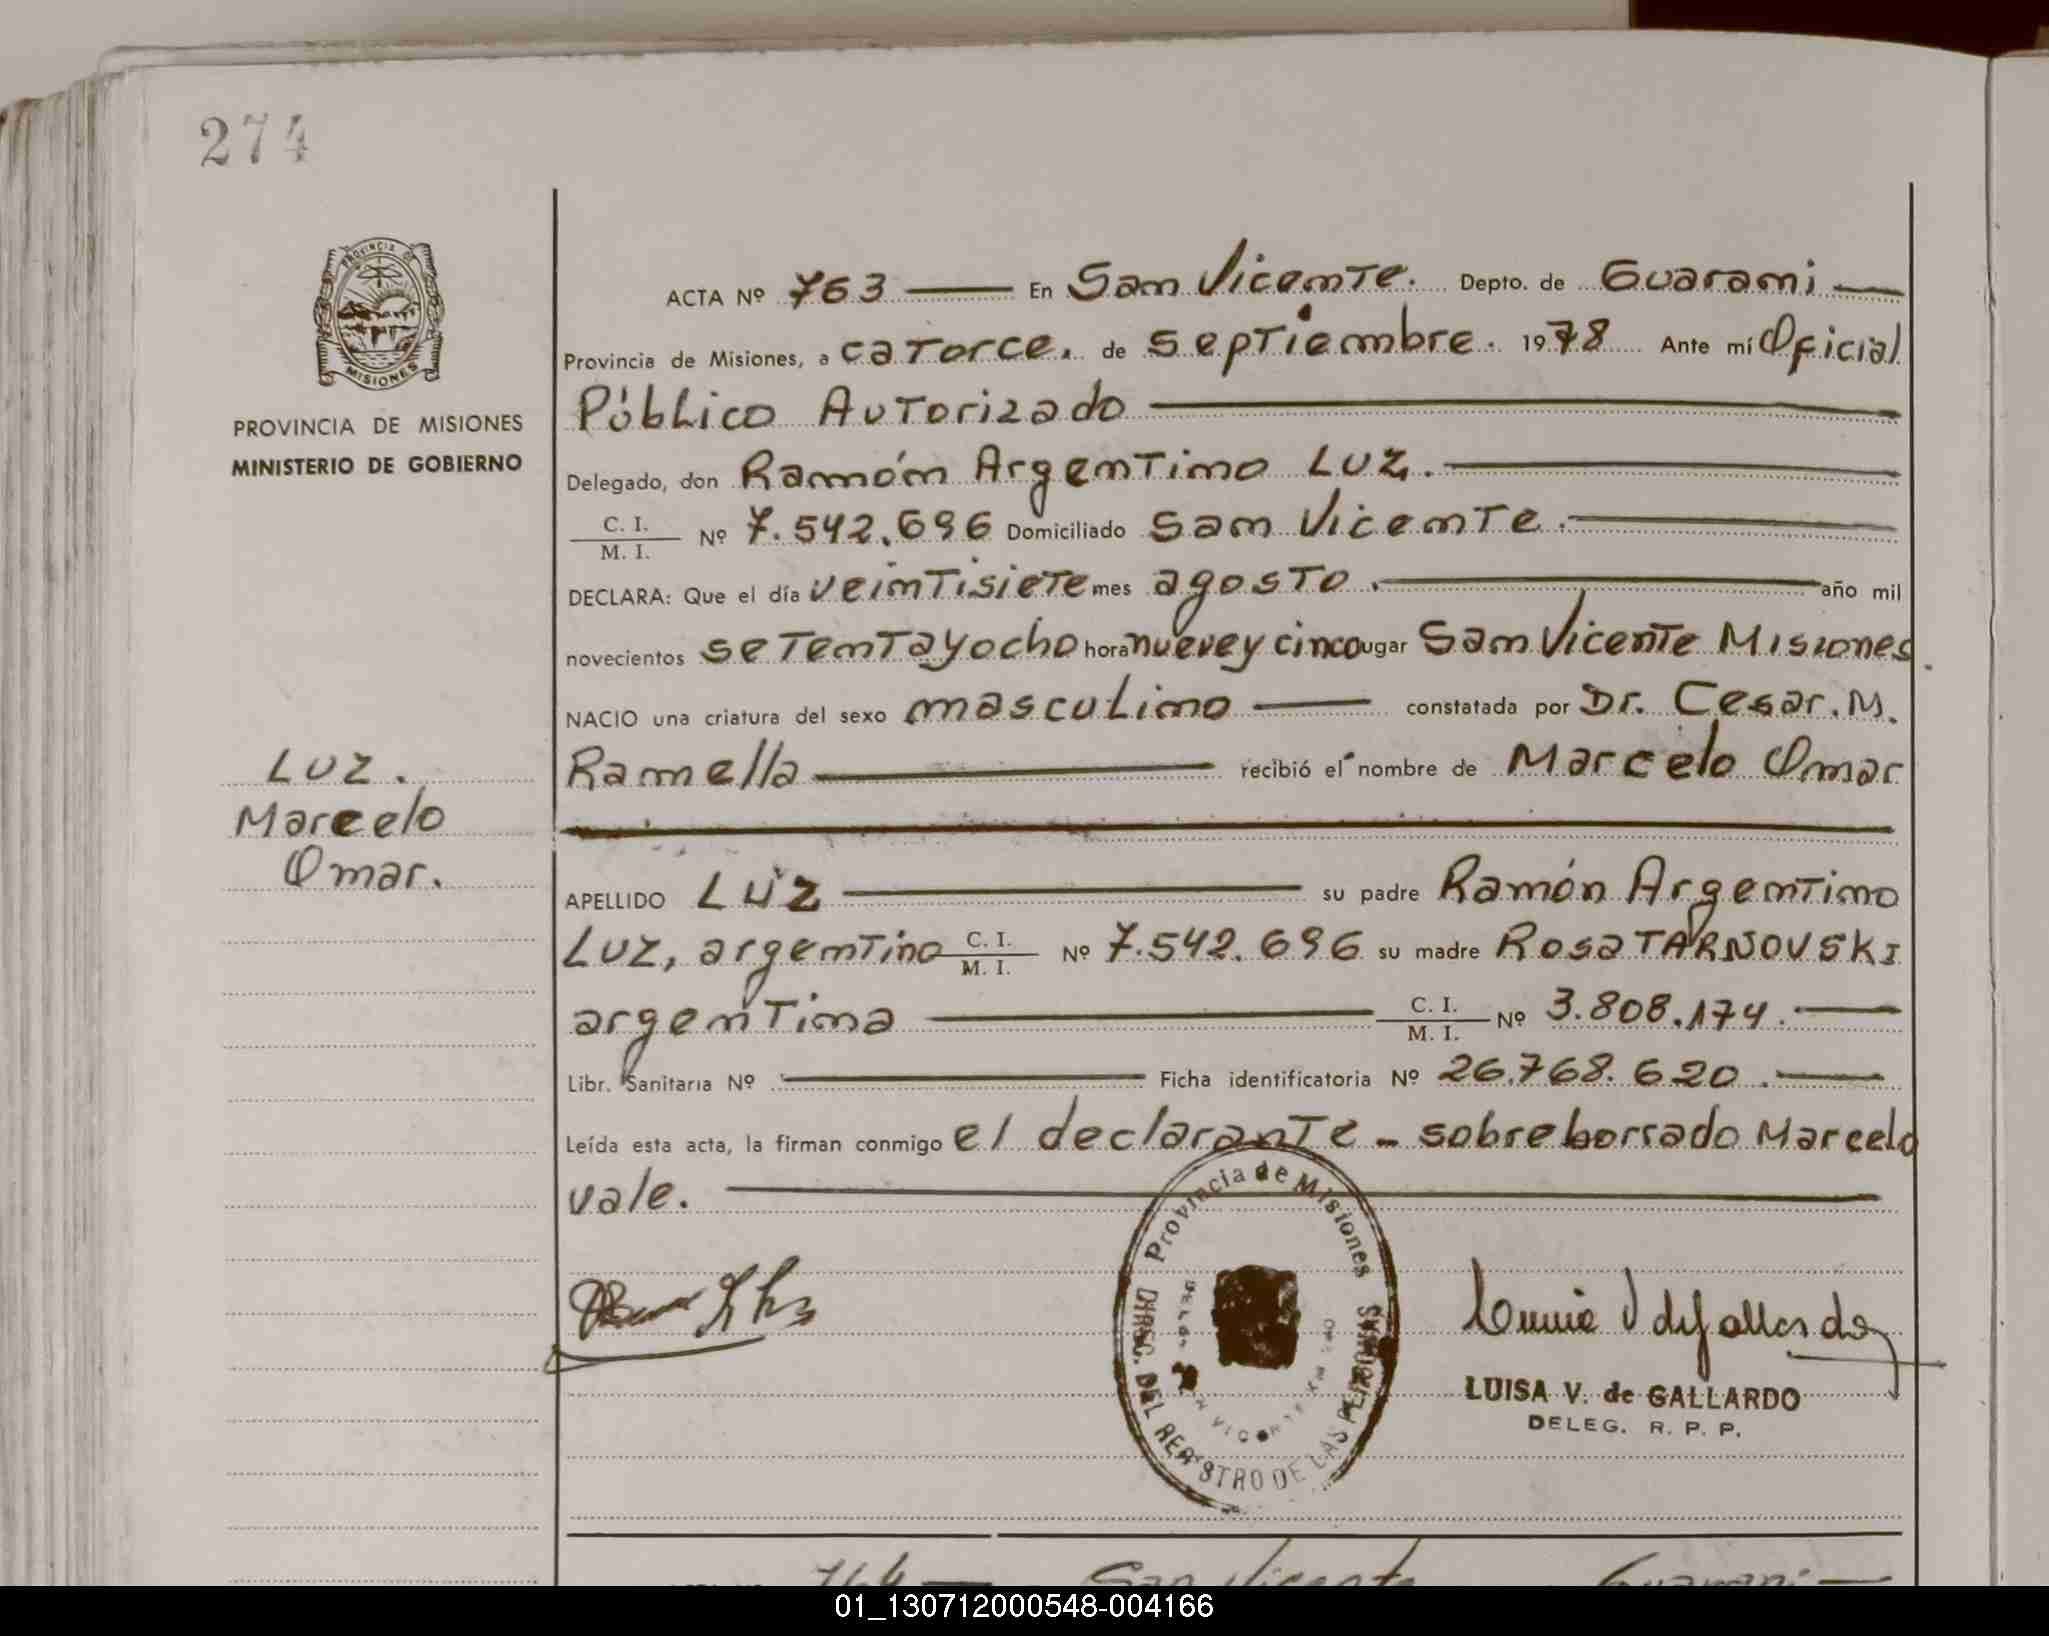 274
PROVINCIA DE
MISIONES
PROVINCIA DE MISIONES
MINISTERIO DE GOBIERNO
ACTA Nº 763 En San Vicente. Depto. de Guarani
Provincia de Misiones, a catorce. de septiembre. 1978 Ante mí Oficial
Público Autorizado
Delegado, don Ramón Argentino Luz.
C. I.
M. I. Nº 7.542.696 Domiciliado San Vicente.
DECLARA: Que el día veintisiete mes agosto. año mil
novecientos setentayocho hora nueve y cinco ugar San Vicente Misiones.
NACIO una criatura del sexo masculino constatada por Dr. Cesar. M.
Ramella recibió el nombre de Marcelo Omar
Luz.
Marcelo
Omar.
APELLIDO Luz su padre Ramón Argentino
Luz, argentino C. I. M. I. Nº 7.542.696 su madre Rosa TARNOVSKI
argentina C. I. M. I. Nº 3.808.174.
Libr. Sanitaria Nº Ficha identificatoria Nº 26.768.620.
Leída esta acta, la firman conmigo el declarante - sobreborrado Marcelo
vale.
Provincia de Misiones
DIREC. DEL REGISTRO DE LAS PERSONAS
LUISA V. de GALLARDO
DELEG. R. P. P.
764 San Vicente Guarani
01_130712000548-004166